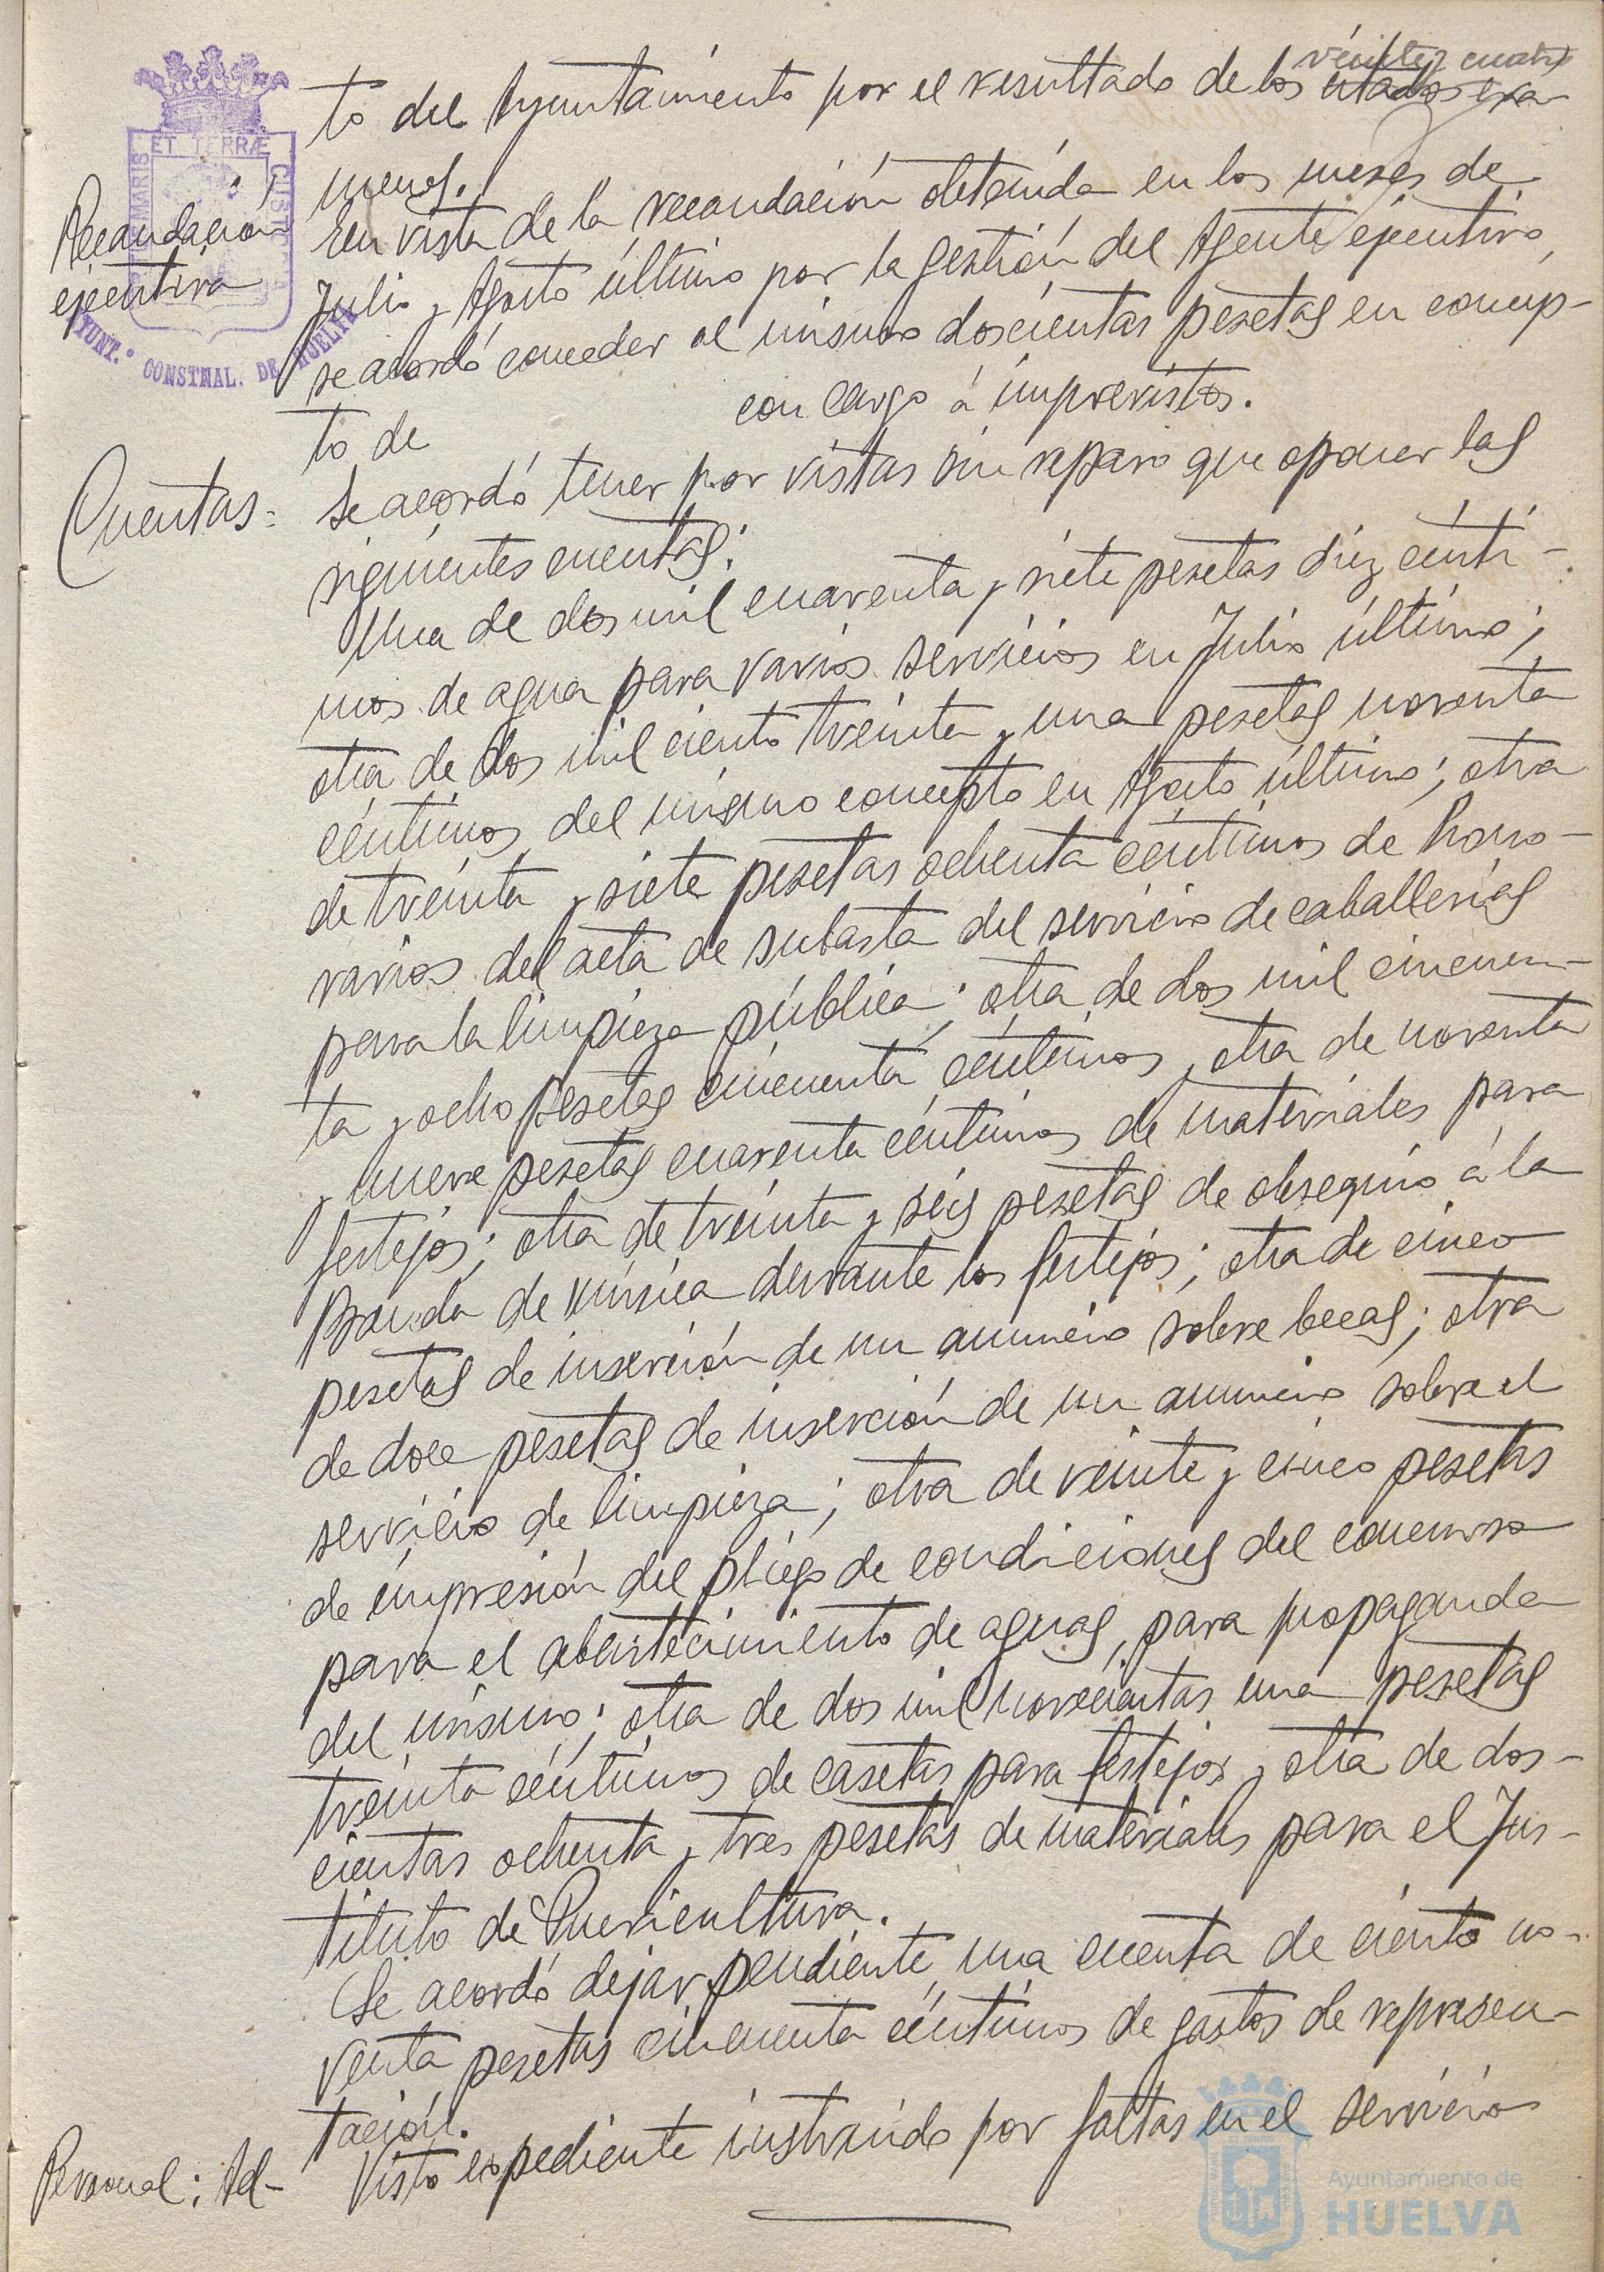 veinte y cuatro
to del Ayuntamiento por el resultado de los citados exa-
menes.
Recaudación
ejecutiva
En vista de la recaudación obtenida en los meses de
Julio y Agosto último por la gestión del Agente ejecutivo,
se acordó conceder al mismo doscientas pesetas en concep-
to de con cargo á imprevistos.
Cuentas=
Se acordó tener por vistas sin reparo que oponer las
siguientes cuentas:
Una de dos mil cuarenta y siete pesetas diez cénti-
mos de agua para varios servicios en Julio último;
otra de dos mil ciento treinta y una pesetas noventa
céntimos del mismo concepto en Agosto último; otra
de treinta y siete pesetas ochenta céntimos de hono-
rarios del acta de subasta del servicio de caballerías
para la limpieza pública; otra de dos mil cincuen-
ta y ocho pesetas cincuenta céntimos y otra de noventa
y nueve pesetas cuarenta céntimos de materiales para
festejos; otra de treinta y séis pesetas de obsequio á la
Banda de música durante los festejos; otra de cinco
pesetas de inserción de un anuncio sobre becas; otra
de doce pesetas de inserción de un anuncio sobre el
servicio de limpieza; otra de veinte y cinco pesetas
de impresión del pliego de condiciones del concurso
para el abastecimiento de aguas, para propaganda
del mismo; otra de dos mil novecientas una pesetas
treinta céntimos de casetas para festejos y otra de dos-
cientas ochenta y tres pesetas de materiales para el Ins-
tituto de Puericultura.
Se acordó dejar pendiente una cuenta de ciento no-
venta pesetas cincuenta céntimos de gastos de represen-
tación.
Personal: Ad-
Visto expediente instruido por faltas en el servicio
ET TERRÆ
MARIS
CUSTO
AYUNT.º CONSTNAL. DE HUELVA
Ayuntamiento de
HUELVA